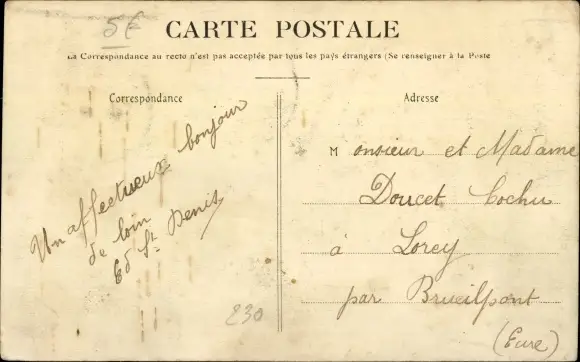 5€
CARTE POSTALE
La Correspondance au recto n'est pas acceptée par tous les pays étrangers (Se renseigner à la Poste
Correspondance
Adresse
Un affectueux bonjour
de loin
Ed St Denis
Monsieur et Madame
Doucet Cochu
à Lorey
par Brueilpont
(Eure)
230